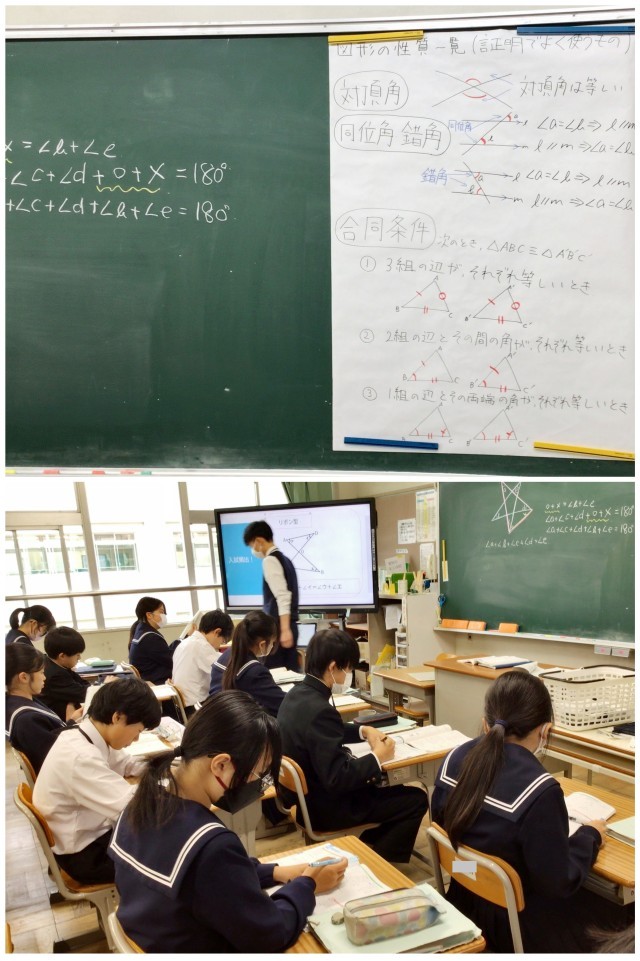 x = ∠b+∠e
∠c+∠d+o+x = 180°
+∠c+∠d+∠b+∠e = 180°
図形の性質一覧 (証明でよく使うもの)
対頂角
対頂角は等しい
同位角 錯角
同位角
∠a=∠b ⇒ l∥m
l∥m ⇒ ∠a=∠b
錯角
∠a=∠b ⇒ l∥m
l∥m ⇒ ∠a=∠b
合同条件
次のとき、△ABC≡△A'B'C'
① 3組の辺が、それぞれ等しいとき
② 2組の辺とその間の角が、それぞれ等しいとき
③ 1組の辺とその両端の角が、それぞれ等しいとき
リボン型
入試頻出!
o+x = ∠b+∠e
∠a+∠c+∠d+o+x = 180°
∠a+∠c+∠d+∠b+∠e = 180°
∠a+∠b+∠c+∠d+∠e